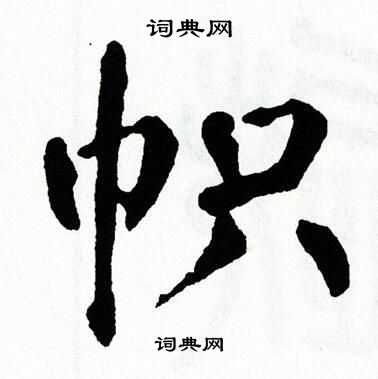 词典网
帜
词典网